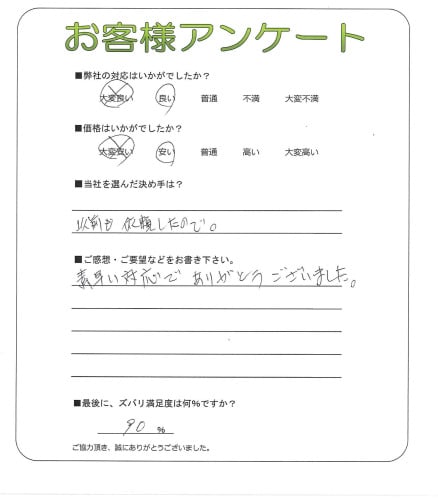 お客様アンケート
■弊社の対応はいかがでしたか？
大変良い 良い 普通 不満 大変不満
■価格はいかがでしたか？
大変安い 安い 普通 高い 大変高い
■当社を選んだ決め手は？
以前も依頼したので。
■ご感想・ご要望などをお書き下さい。
素早い対応でありがとうございました。
■最後に、ズバリ満足度は何％ですか？
90 ％
ご協力頂き、誠にありがとうございました。